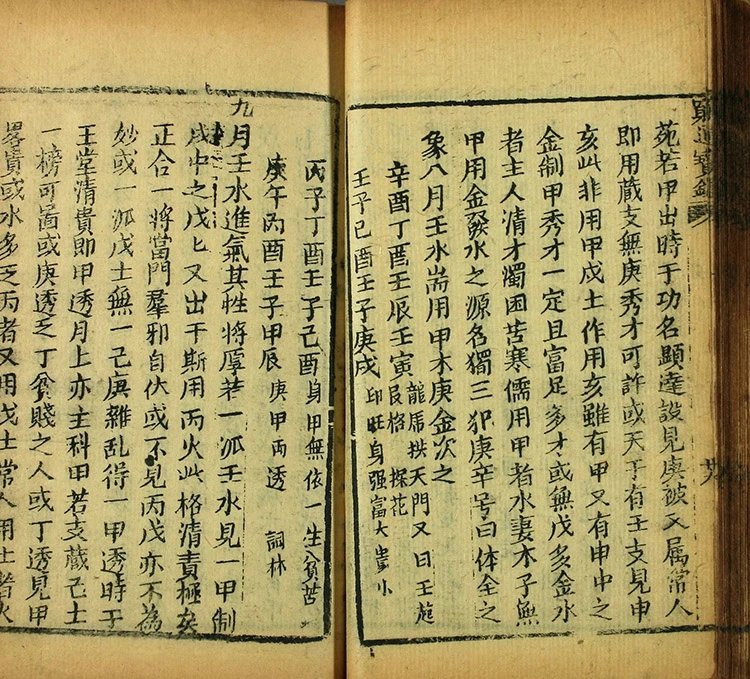 窮通寶鑑
苑若甲出時干功名顯達設見庚被又属常人
即用蔵支無庚秀才可許或天于有壬支見申
亥此非用甲戌土作用亥雖有甲又有申中之
金制甲秀才一定且富足多才或無戊多金水
者主人清才濁困苦寒儒用甲者水妻木子無
甲用金發水之源名獨三犯庚辛号曰体全之
象八月壬水耑用甲木庚金次之
辛酉丁酉壬辰壬寅 龍馬拱天門又曰壬趍
艮格 探花
壬子己酉壬子庚戌 印旺身强富大貴小
丙子丁酉壬子己酉 身甲無依一生貧苦
庚午丙酉壬子甲辰 庚甲両透 詞林
九月壬水進氣其性将厚若一派壬水見一甲制
戍中之戊匕又出干斯用丙火此格清貴極矣
正合一將當門羣邪自伏或不見丙戊亦不為
妙或一派戊土無一己庚雜乱得一甲透時于
王堂清貴即甲透月上亦主科甲若支蔵己土
一榜可啚或庚透乏丁貧賤之人或丁透見甲
畧貴或水多乏丙者又用戊土常人用土者火